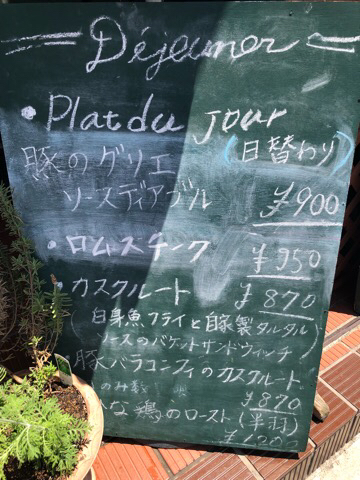 Déjeuner
• Plat du jour
(日替わり)
豚のグリエ
ソースディアブル ¥900
• ロムスチーク ¥950
• カスクルート ¥870
(白身魚フライと自家製タルタル
ソースのバケットサンドウィッチ)
豚バラコンフィのカスクルート
¥870
な鶏のロースト(半羽)
¥1200